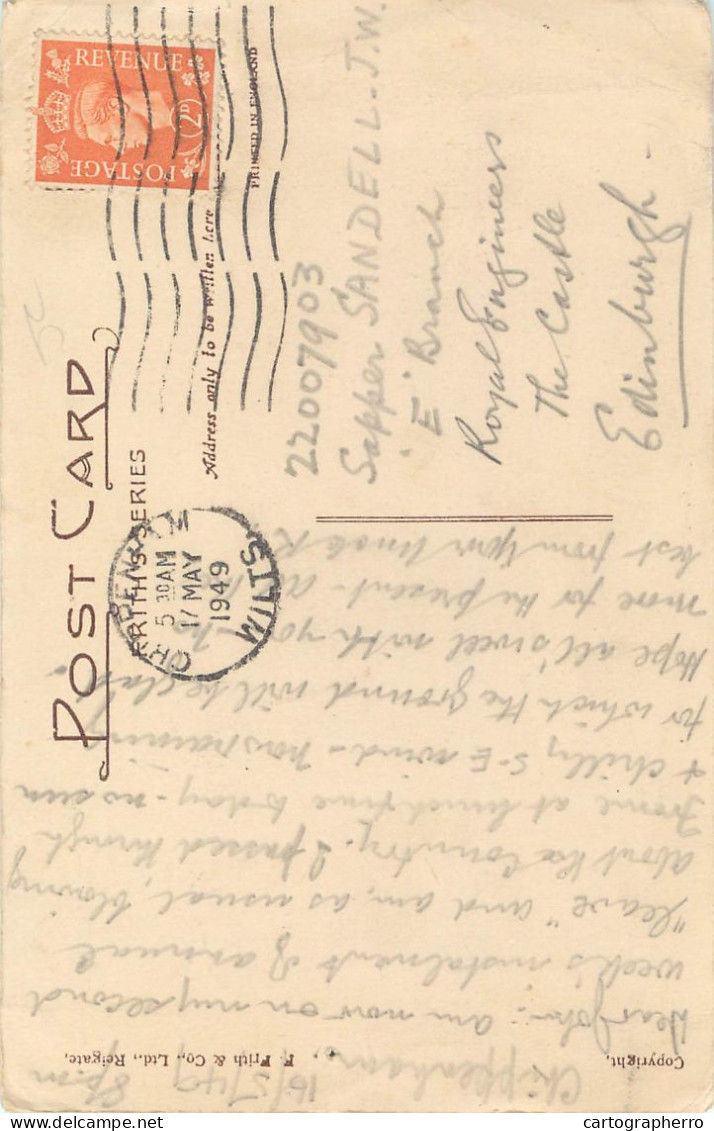 POST CARD
FRITH'S SERIES
Address only to be written here
PRINTED IN ENGLAND
REVENUE
2D
POSTAGE
CHIPPENHAM
5 30 AM
17 MAY
1949
WILTS
22007903
Sapper SANDELL - J.W.
'E' Branch
Royal Engineers
The Castle
Edinburgh
Copyright,
F. Frith & Co., Ltd., Reigate,
Chippenham,
16/5/49 8pm
Dear John: am now on my second
week's instalment of annual
"leave" and am, as usual, blowing
about the Country. I passed through
Frome at lunch time today - no sun
& chilly S-E wind - has raining
for which the ground will be glad.
Hope all's well with you - no
more for the present - all the
best from your Uncle R
cartographerro - delcampe.net